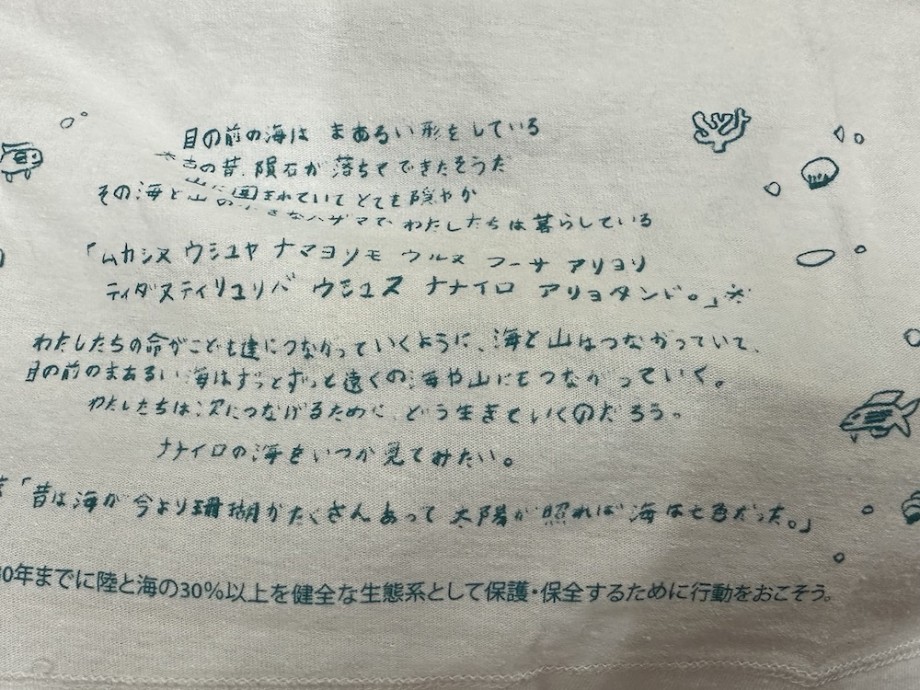 目の前の海は まあるい形をしている
の昔、隕石が落ちてできたそうだ
その海と山に囲まれていてとても隠やか
ハザマで、わたしたちは暮らしている
「ムカシヌ ウシュヤ ナマヨリモ ウルヌ フーサ アリヨリ
ティダヌティリュリバ ウシュヌ ナナイロ アリョタンド。」※
わたしたちの命がこども達につながっていくように、海と山はつながっていて、
目の前のまあるい海はずっとずっと遠くの海や山にもつながっていく。
わたしたちは次につなげるために、どう生きていくのだろう。
ナナイロの海をいつか見てみたい。
「昔は海が今より珊瑚がたくさんあって 太陽が照れば海は七色だった。」
0年までに陸と海の30%以上を健全な生態系として保護・保全するために行動をおこそう。